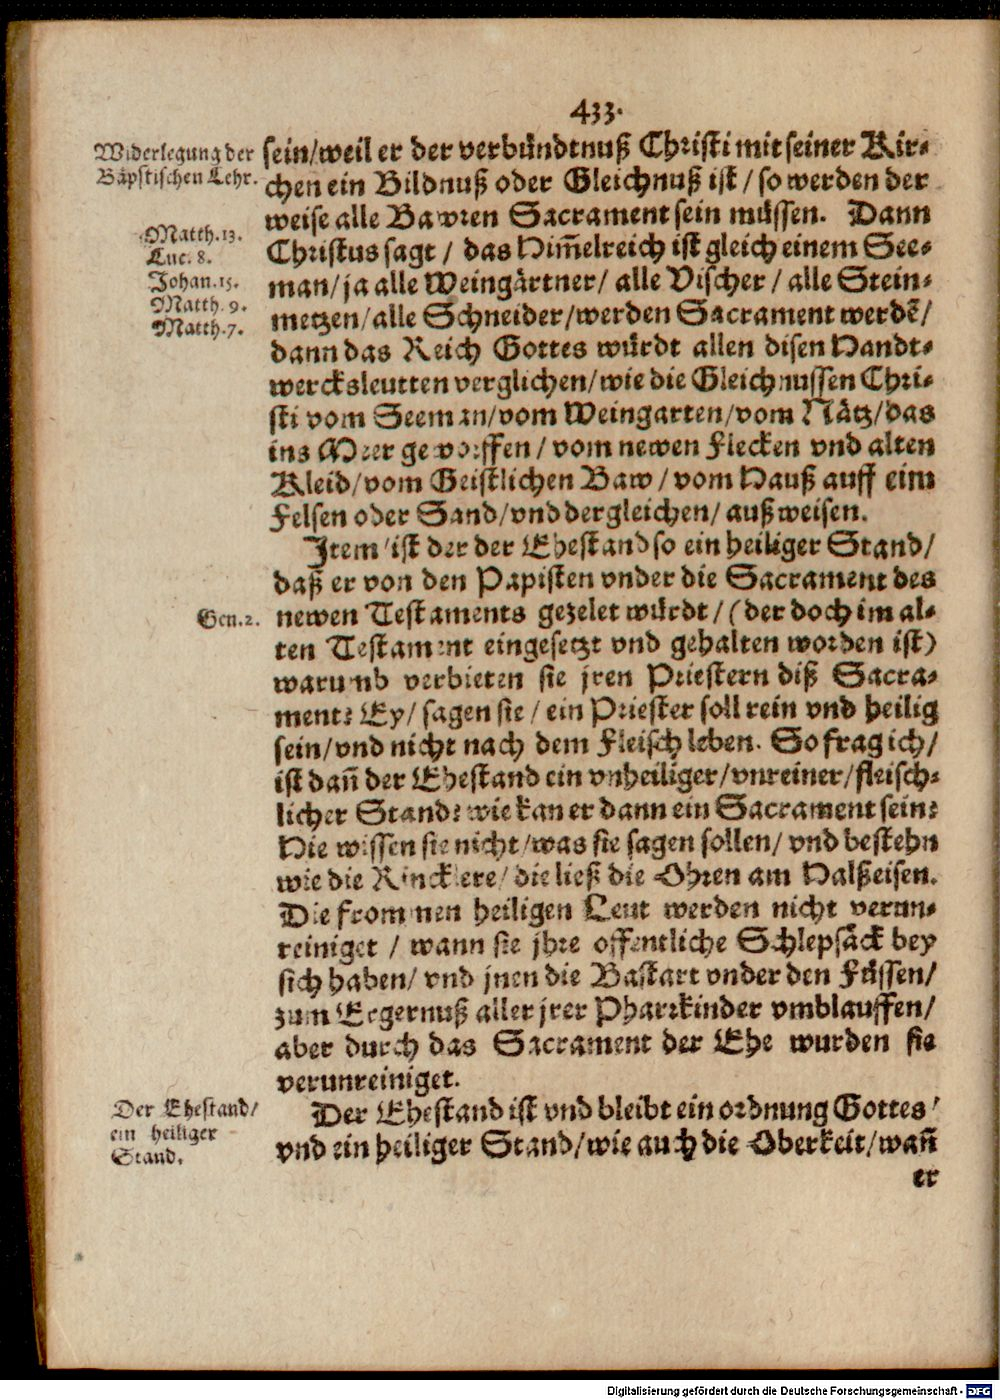 433.
Widerlegung der
Bäpstischen Lehr.
Matth. 13.
Luc. 8.
Johan. 15.
Matth. 9.
Matth. 7.
sein/weil er der verbündtnuß Christi mit seiner Kir-
chen ein Bildnuß oder Gleichnuß ist / so werden der
weise alle Bawren Sacrament sein müssen. Dann
Christus sagt / das Him̃elreich ist gleich einem See-
man/ ja alle Weingärtner/ alle Vischer / alle Stein-
metzen/alle Schneider/werden Sacrament werdẽ/
dann das Reich Gottes würdt allen disen Handt-
wercksleutten verglichen/wie die Gleichnussen Chri-
sti vom Seeman/vom Weingarten/vom Nätz/das
ins Meer geworffen / vom newen Flecken vnd alten
Kleid/vom Geistlichen Baw / vom Hauß auff eim
Felsen oder Sand/vnd dergleichen/ außweisen.
Item/ ist der der Ehestand so ein heiliger Stand/
daß er von den Papisten vnder die Sacrament des
Gen. 2.
newen Testaments gezelet würdt/ (der doch im al-
ten Testament eingesetzt vnd gehalten worden ist)
warumb verbieten sie jren Priestern diß Sacra-
ment? Ey/ sagen sie / ein Priester soll rein vnd heilig
sein/vnd nicht nach dem Fleisch leben. So frag ich/
ist dañ der Ehestand ein vnheiliger/vnreiner/fleisch-
licher Stand? wie kan er dann ein Sacrament sein?
Hie wissen sie nicht/was sie sagen sollen/ vnd bestehn
wie die Rincklere/ die ließ die Ohren am Halßeisen.
Die frommen heiligen Leut werden nicht verun-
reiniget / wann sie jhre offentliche Schlepsäck bey
sich haben/ vnd jnen die Bastart vnder den Füssen/
zum Ergernuß aller jrer Pharrkinder vmblauffen/
aber durch das Sacrament der Ehe wurden sie
verunreiniget.
Der Ehestand/
ein heiliger
Stand.
Der Ehestand ist vnd bleibt ein ordnung Gottes/
vnd ein heiliger Stand/wie auch die Oberkeit/wañ
er
Digitalisierung gefördert durch die Deutsche Forschungsgemeinschaft - DFG